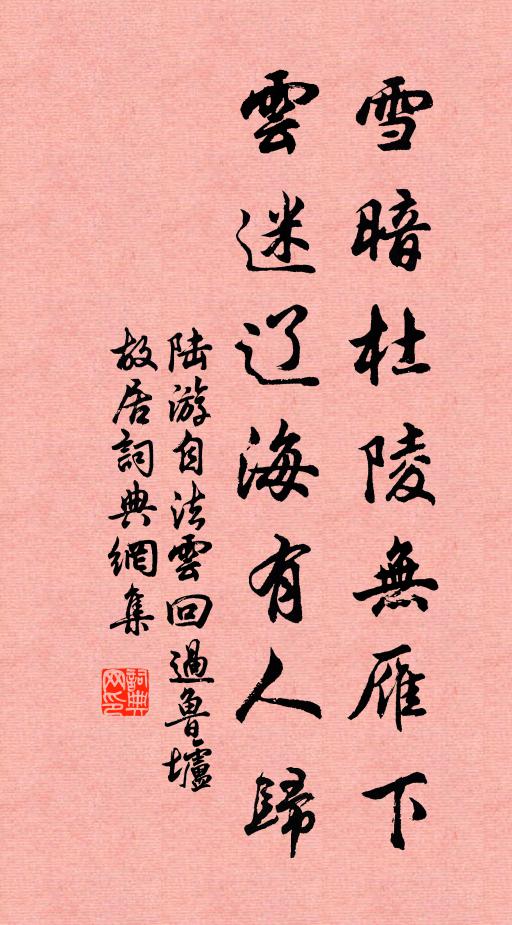 雪暗杜陵無雁下
雲迷辽海有人歸
陆游自法雲回過魯墟
故居詞典網集
詞典
网印